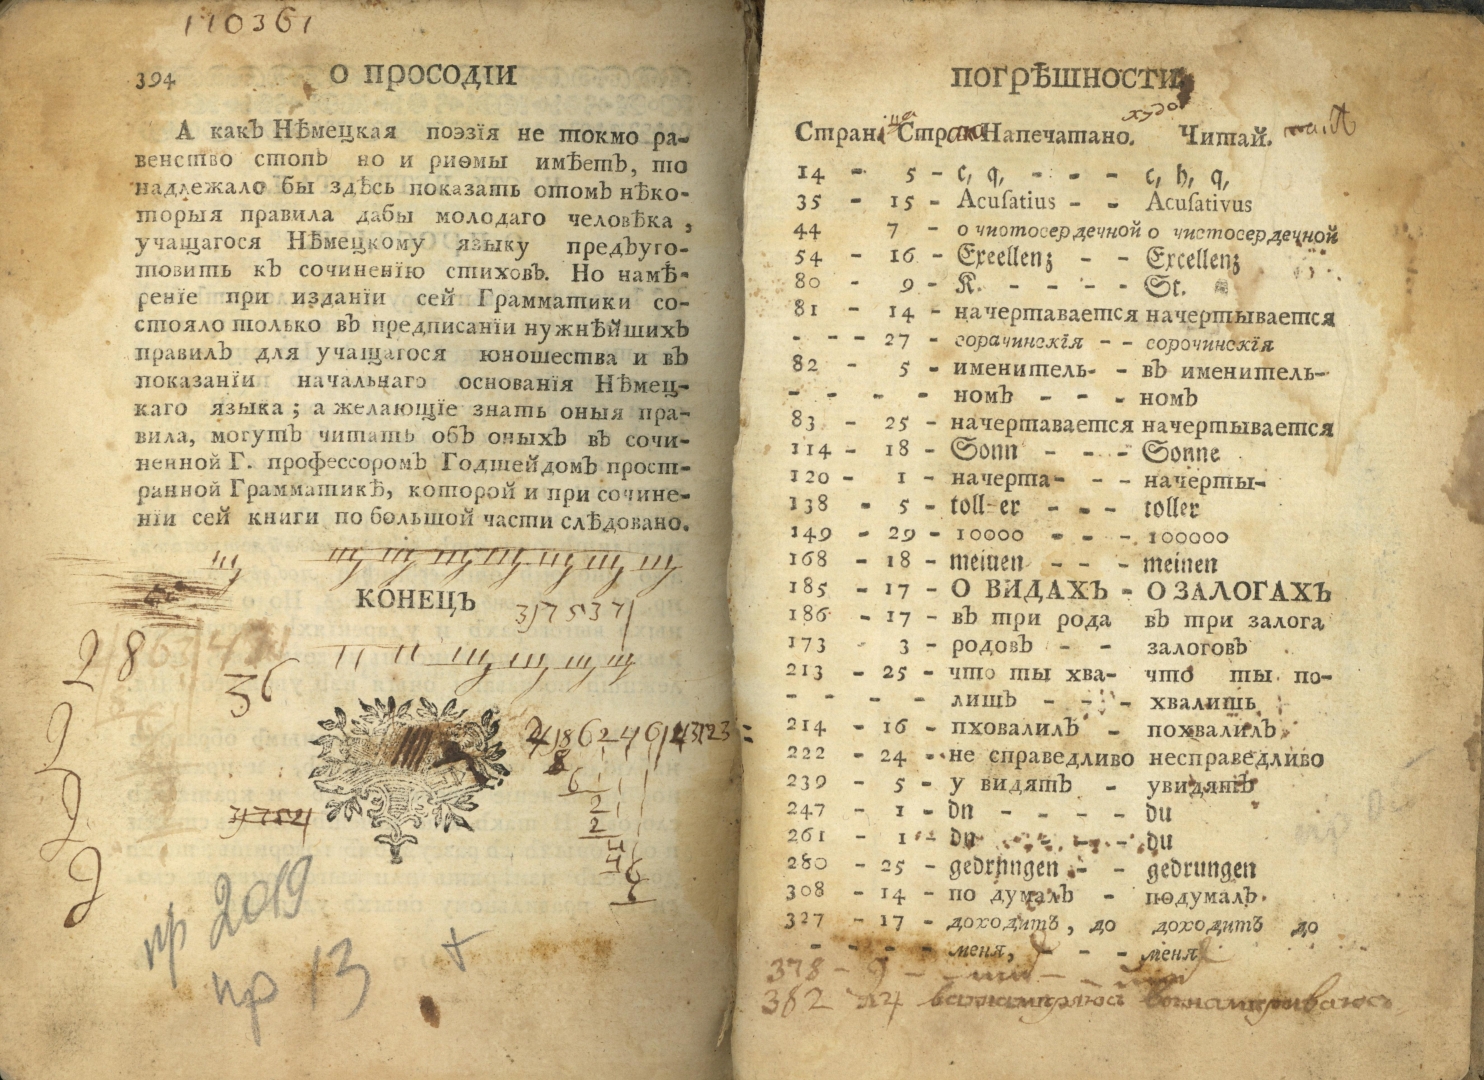 110361
394 О ПРОСОДІИ
А какЪ Нѣмецкая поэзія не токмо ра-
венство стопЪ но и риѳмы имѣетЪ, то
надлежало бы здѣсь показать отомЪ нѣко-
торыя правила дабы молодаго человѣка,
учащагося Нѣмецкому языку предЪуго-
товить кЪ сочиненію стиховЪ. Но намѣ-
реніе при изданіи сей Грамматики со-
стояло только вЪ предписаніи нужнѣйшихЪ
правилЪ для учащагося юношества и вЪ
показаніи начальнаго основанія Нѣмец-
каго языка; а желающіе знать оныя пра-
вила, могутЪ читать обЪ оныхЪ вЪ сочи-
ненной Г. профессоромЪ ГодшейдомЪ прост-
ранной Грамматикѣ, которой и при сочине-
ніи сей книги по большой части слѣдовано.
КОНЕЦЪ
28
36
пр 2019
пр 13
ПОГРѢШНОСТИ
Стран. Строк. Напечатано. худо Читай.
14 - 5 - c, q, - - - c, h, q,
35 - 15 - Acuſatius - - Acuſativus
44 7 - о чиотосердечной о чистосердечной
54 - 16 - Exeellenz - - Excellenz
80 - 9 - K. - - - - St.
81 - 14 - начертавается начертывается
- - - 27 - сорачинскія - - сорочинскія
82 - 5 - именитель- - вЪ именитель-
- - - - номЪ - - - номЪ
83 - 25 - начертавается начертывается
114 - 18 - Sonn - - - Sonne
120 - 1 - начерта- - - начерты-
138 - 5 - toll-er - - - toller
149 - 29 - 10000 - - - 100000
168 - 18 - meiuen - - - meinen
185 - 17 - О ВИДАХЪ - О ЗАЛОГАХЪ
186 - 17 - вЪ три рода вЪ три залога
173 - 3 - родовЪ - - залоговЪ
213 - 25 - что ты хва- что ты по-
- - - - лишЪ - - - хвалишь
214 - 16 - пховалилЪ - похвалилЪ
222 - 24 - не справедливо несправедливо
239 - 5 - у видятЪ - увидятЪ
247 - 1 - dn - - - - du
261 - 1 - dn - - - - du
280 - 25 - gedrnngen - - gedrungen
308 - 14 - по думалЪ - подумалЪ
327 - 17 - доходитЪ, до доходитЪ до
- - - - меня, - - - меня
378
382